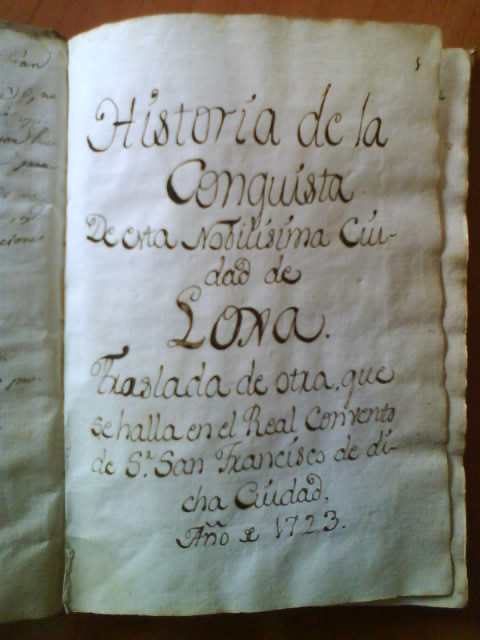 Historia de la
Conquista
De esta Nobilisima Ciu-
dad de
Lorca.
Traslada de otra, que
se halla en el Real Convento
de Sr. San Francisco de di-
cha Ciudad.
Año de 1723.